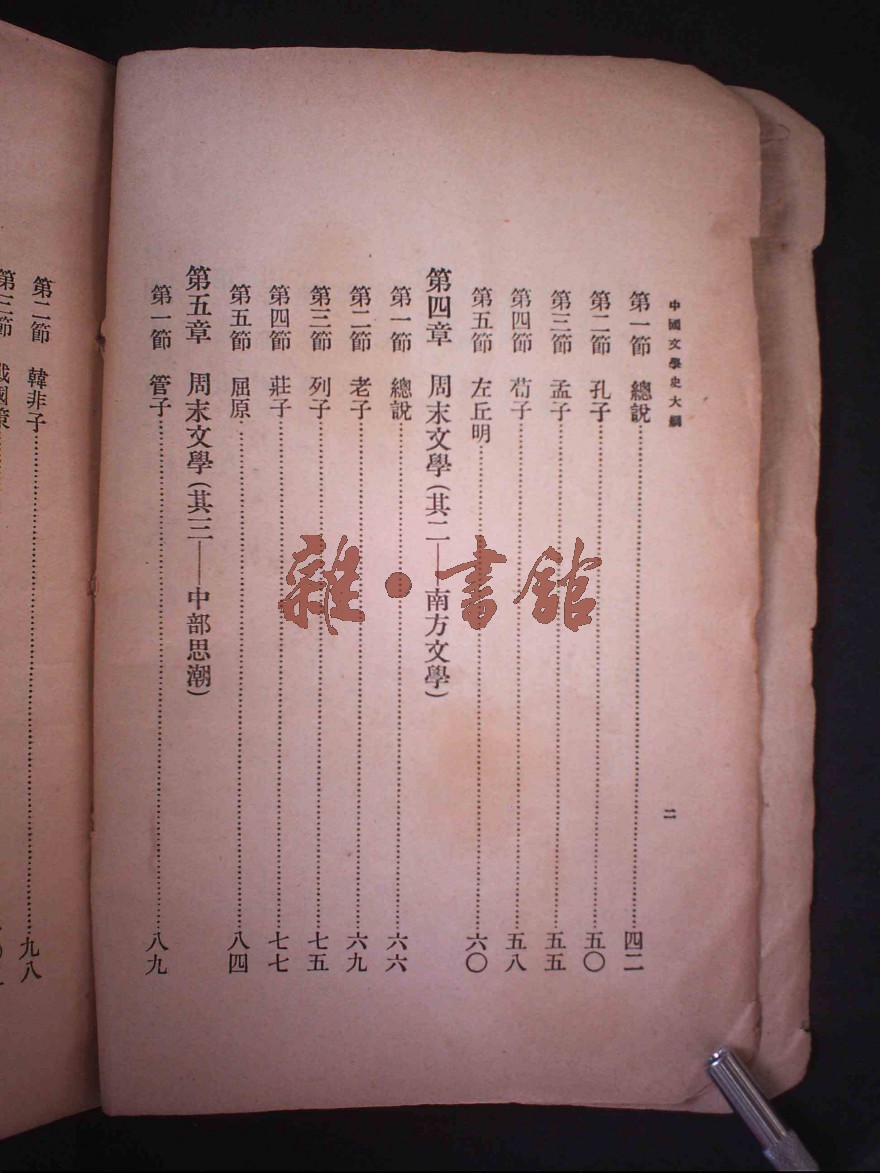 中國文學史大綱
二
第一節 總說……四二
第二節 孔子……五〇
第三節 孟子……五五
第四節 荀子……五八
第五節 左丘明……六〇
第四章 周末文學(其二——南方文學)
第一節 總說……六六
第二節 老子……六九
第三節 列子……七五
第四節 莊子……七七
第五節 屈原……八四
第五章 周末文學(其三——中部思潮)
第一節 管子……八九
第二節 韓非子……九八
第三節 戰國策……
雜·書館